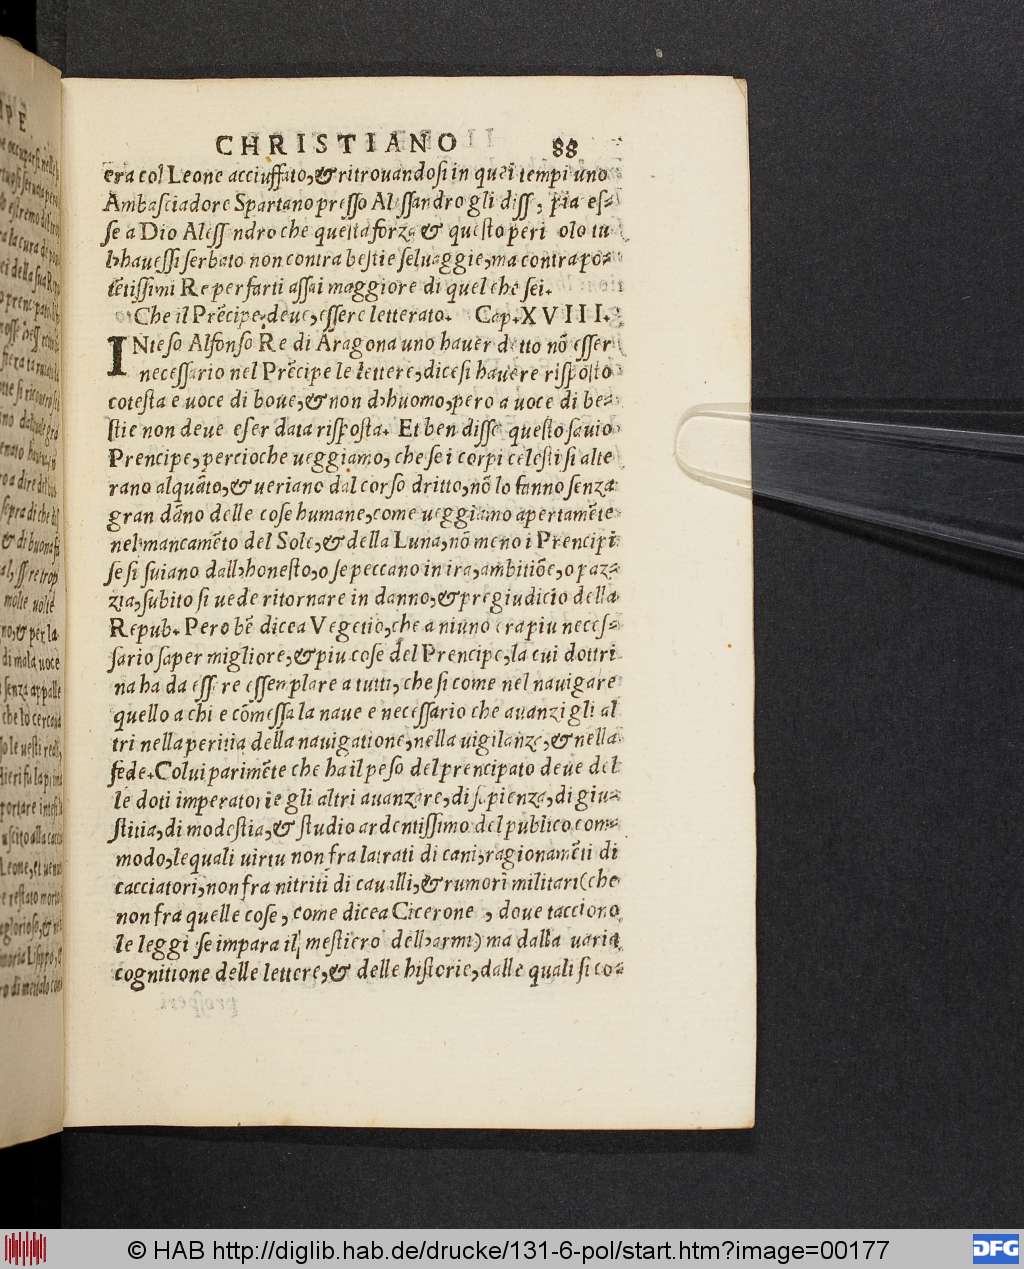 CHRISTIANO 88
era col Leone acciuffato, & ritrovandosi in quei tempi uno
Ambasciadore Spartano presso Alessandro gli disse, pia es-
se a Dio Alessandro che questa forza & questo peri olo tu
l'hauessi serbato non contra bestie seluaggie, ma contra po-
tẽtissimi Re per farti assai maggiore di quel che sei.
Che il Prẽcipe deue, essere letterato. Cap. XVIII.
INteso Alfonso Re di Aragona uno hauer detto nõ esser
necessario nel Prẽcipe le lettere, dicesi hauere risposto
cotesta e uoce di boue, & non d'huomo, pero a uoce di be-
stie non deue eser data risposta. Et ben disse questo sauio
Prencipe, percioche ueggiamo, che se i corpi celesti si alte
rano alquãto, & ueriano dal corso dritto, nõ lo fanno senza
gran dãno delle cose humane, come ueggiamo apertamẽte
nel mancamẽto del Sole, & della Luna, nõ meno i Prencipi
se si suiano dall'honesto, o se peccano in ira, ambitiõe, o paz-
zia, subito si uede ritornare in danno, & pregiudicio della
Repub. Pero bẽ dicea Vegetio, che a niuno era piu neces-
sario saper migliore, & piu cose del Prencipe, la cui dottri
na ha da ess re essenplare a tutti, che si come nel nauigare
quello a chi e cõmessa la naue e necessario che auanzi gli al
tri nella peritia della nauigatione, nella uigilanze, & nella
fede. Colui parimẽte che ha il peso del prencipato deue del
le doti imperatorie gli altri auanzare, di sapienza, di giu-
stitia, di modestia, & studio ardentissimo del publico com-
modo, lequali uirtu non fra latrati di cani, ragionamẽti di
cacciatori, non fra nitriti di caualli, & rumori militari (che
non fra quelle cose, come dicea Cicerone, doue tacciono
le leggi se impara il mestiero dell'armi) ma dalla uaria
cognitione delle lettere, & delle historie, dalle quali si co-
© HAB http://diglib.hab.de/drucke/131-6-pol/start.htm?image=00177
DFG